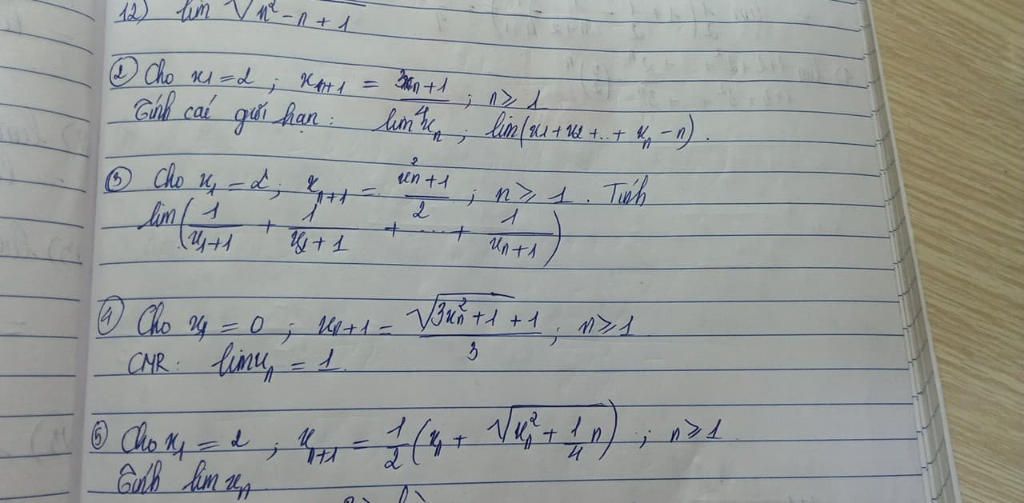 12) lim √(n² - n + 1)
② Cho x₁ = 2 ; xₙ₊₁ = (3xₙ + 1)/4 ; n ≥ 1
Tính các giới hạn : lim xₙ ; lim(x₁ + x₂ + .. + xₙ - n) .
③ Cho x₁ = 2 ; xₙ₊₁ = (xₙ² + 1)/2 ; n ≥ 1 . Tính
lim(1/(x₁+1) + 1/(x₂+1) + ... + 1/(xₙ+1))
④ Cho x₁ = 0 ; xₙ₊₁ = (√(3xₙ² + 1) + 1)/3 ; n ≥ 1
CMR : lim xₙ = 1
⑤ Cho x₁ = 2 ; xₙ₊₁ = 1/2 (xₙ + √(xₙ² + 1/4 n)) ; n ≥ 1
Tính lim xₙ